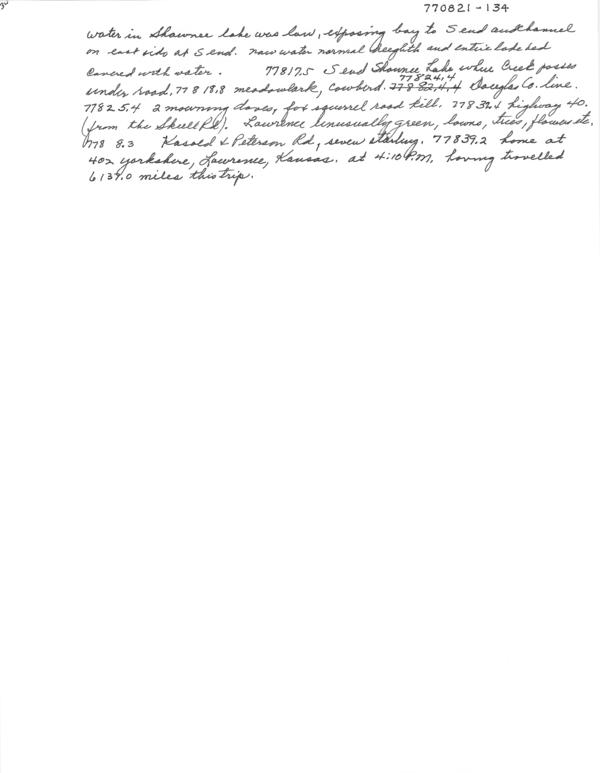 770821-134
water in Shawnee Lake was low, exposing bay to S end and channel
on east side at S end. now water normal heighth and entire lake bed
covered with water. 77817.5 S end Shawnee Lake where Creek passes
under road, 77818.8 meadowlark, cowbird. 77824.4 Douglas Co. line.
77825.4 2 mourning doves, fox squirrel road kill. highway 40.
(from the Skull Rd). Lawrence unusually green, lawns, trees, flowers etc.
Kasold & Peterson Rd, seven starling. 77839.2 home at
402 yorkshire, Lawrence, Kansas. at 4:10 P.M. having travelled
6139.0 miles this trip.